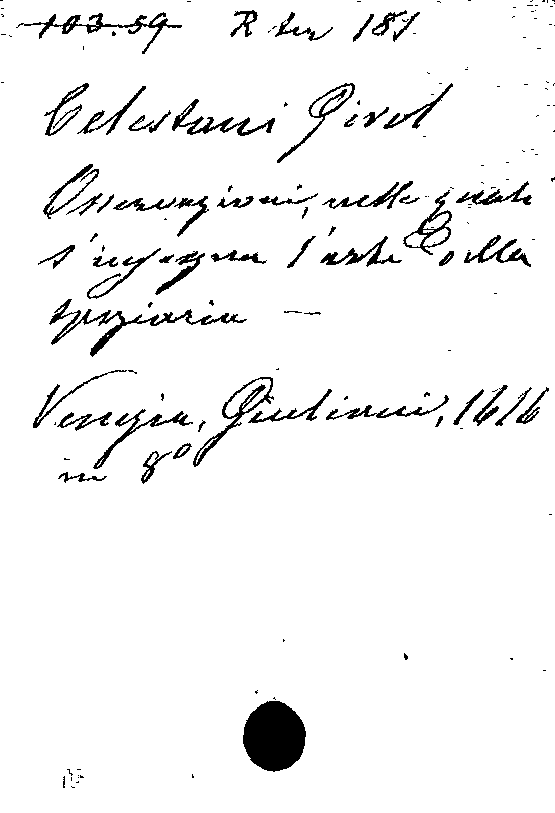 103.59 R ter 181
Celestani Girol
Osservazioni, nelle quali
s'insegna l'arte della
speziaria —
Venezia, Giuliani, 1616
in 8º